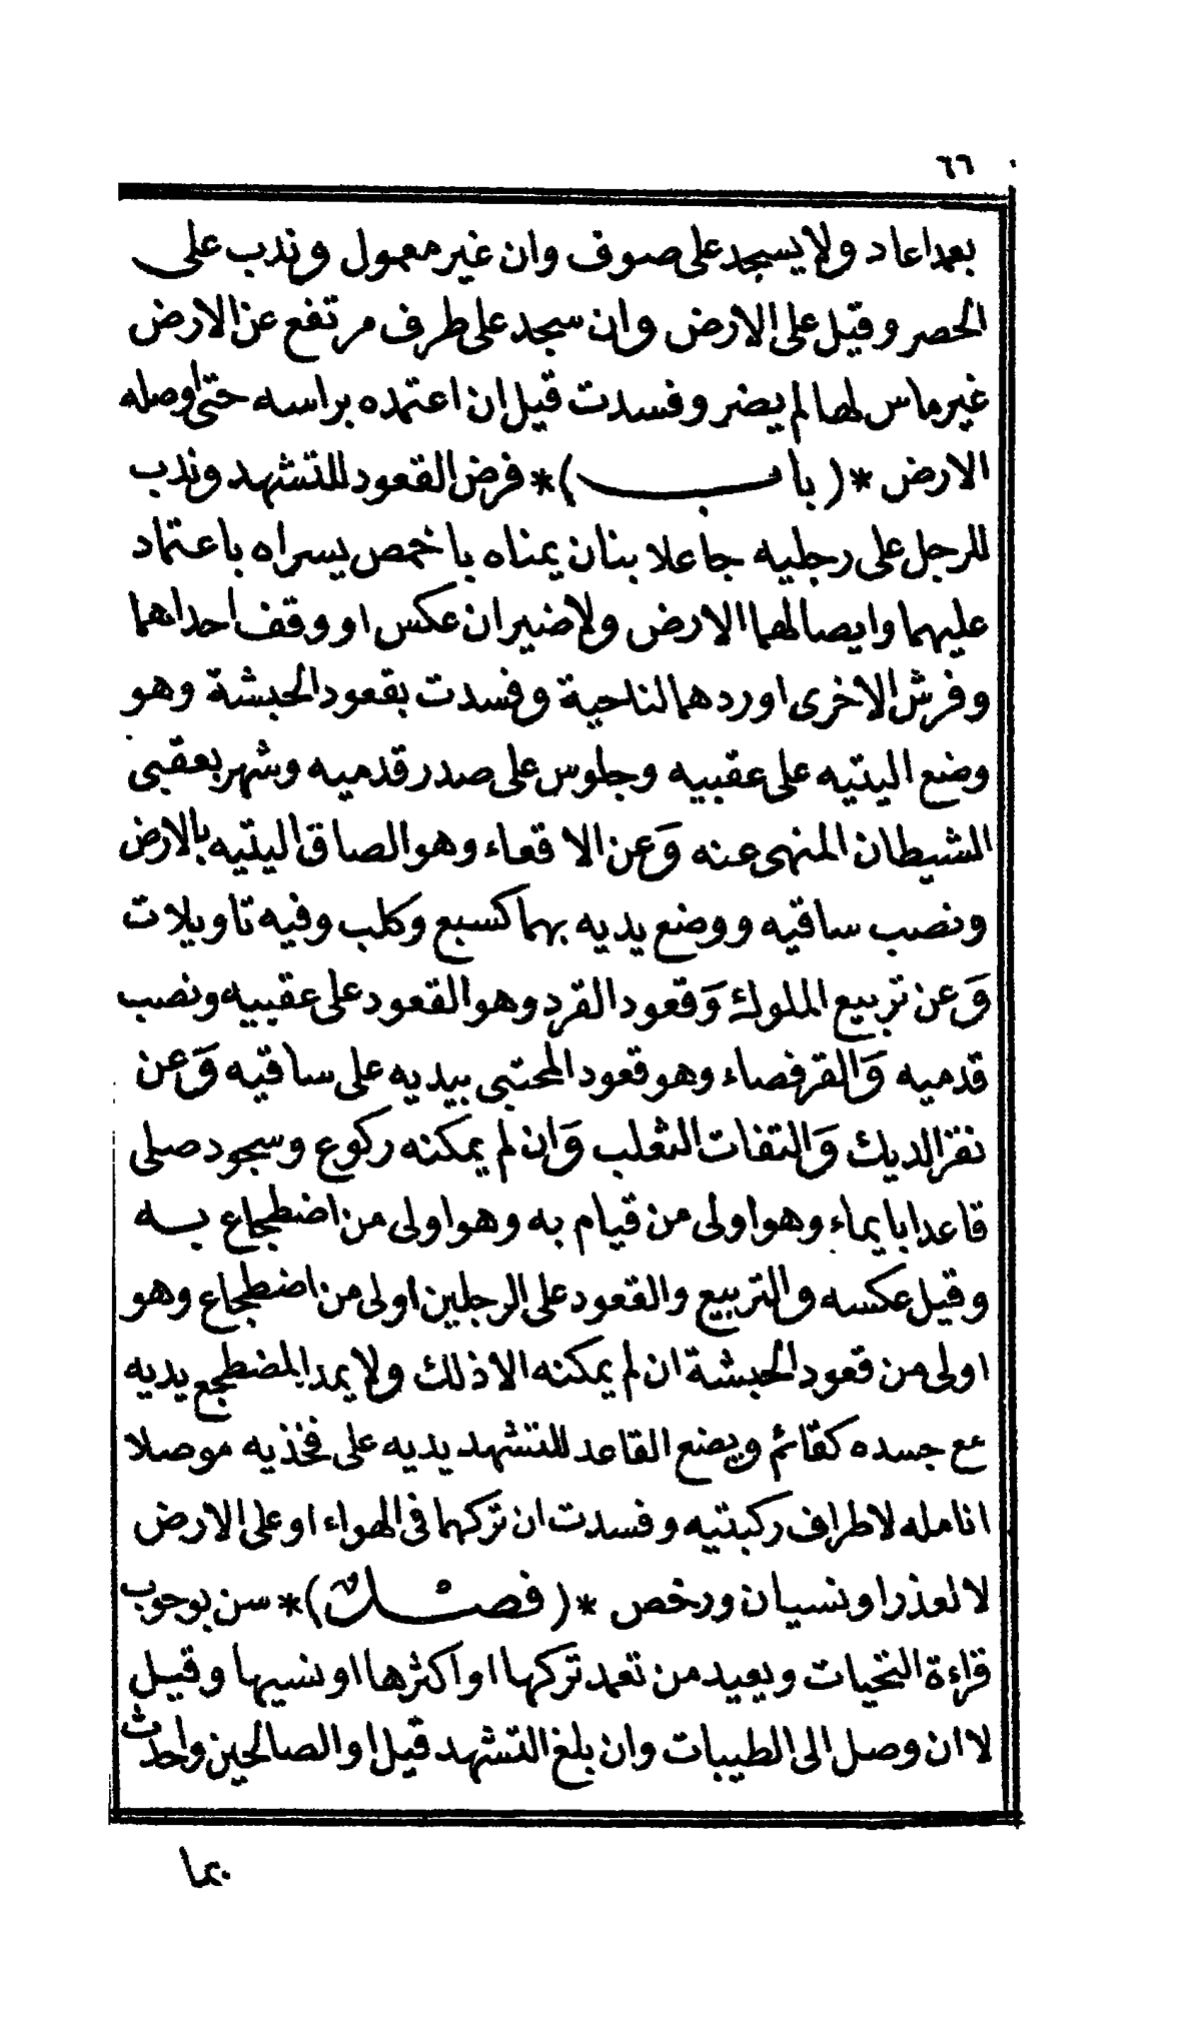 ٦٦
بعد اعاد ولا يسجد على صوف وان غير معمول وندب على
الحصر وقيل على الارض وان سجد على طرف مرتفع عن الارض
غير ماس لها لم يضر وفسدت قيل ان اعتمده براسه حتى اوصله
الارض *(باب)* فرض القعود للتشهد وندب
للرجل على رجليه جاعلا بنان يمناه باخمص يسراه باعتماد
عليهما وايصالهما الارض ولا ضير ان عكس او وقف احداهما
وفرش الاخرى او ردهما لناحية وفسدت بقعود الحبشة وهو
وضع اليتيه على عقبيه وجلوس على صدر قدميه وشهر بعقبى
الشيطان المنهى عنه وَعن الاقعاء وهو الصاق اليتيه بالارض
ونصب ساقيه ووضع يديه بهما كسبع وكلب وفيه تاويلات
وَعن تربيع الملوك وَقعود القرد وهو القعود على عقبيه ونصب
قدميه وَالقرفصاء وهو قعود المحتبى بيديه على ساقيه وَعن
نقر الديك وَالتفات الثعلب وَان لم يمكنه ركوع وسجود صلى
قاعدا بايماء وهو اولى من قيام به وهو اولى من اضطجاع به
وقيل عكسه والتربيع والقعود على الرجلين اولى من اضطجاع وهو
اولى من قعود الحبشة ان لم يمكنه الا ذلك ولا يمد المضطجع يديه
مع جسده كقائم ويضع القاعد للتشهد يديه على فخذيه موصلا
انامله لاطراف ركبتيه وفسدت ان تركهما فى الهواء او على الارض
لا لعذر او نسيان ورخص *(فصل)* سن بوجوب
قراءة التحيات ويعيد من تعمد تركها او اكثرها او نسيها وقيل
لا ان وصل الى الطيبات وان بلغ التشهد قيل او الصالحين واحدث
بما